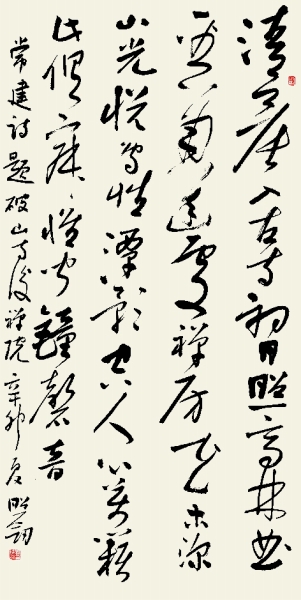 清晨入古寺初日照高林曲
徑通幽處禅房花木深
山光悦鳥性潭影空人心萬籟
此俱寂惟聞鐘磬音
常建詩題破山寺後禅院辛卯夏